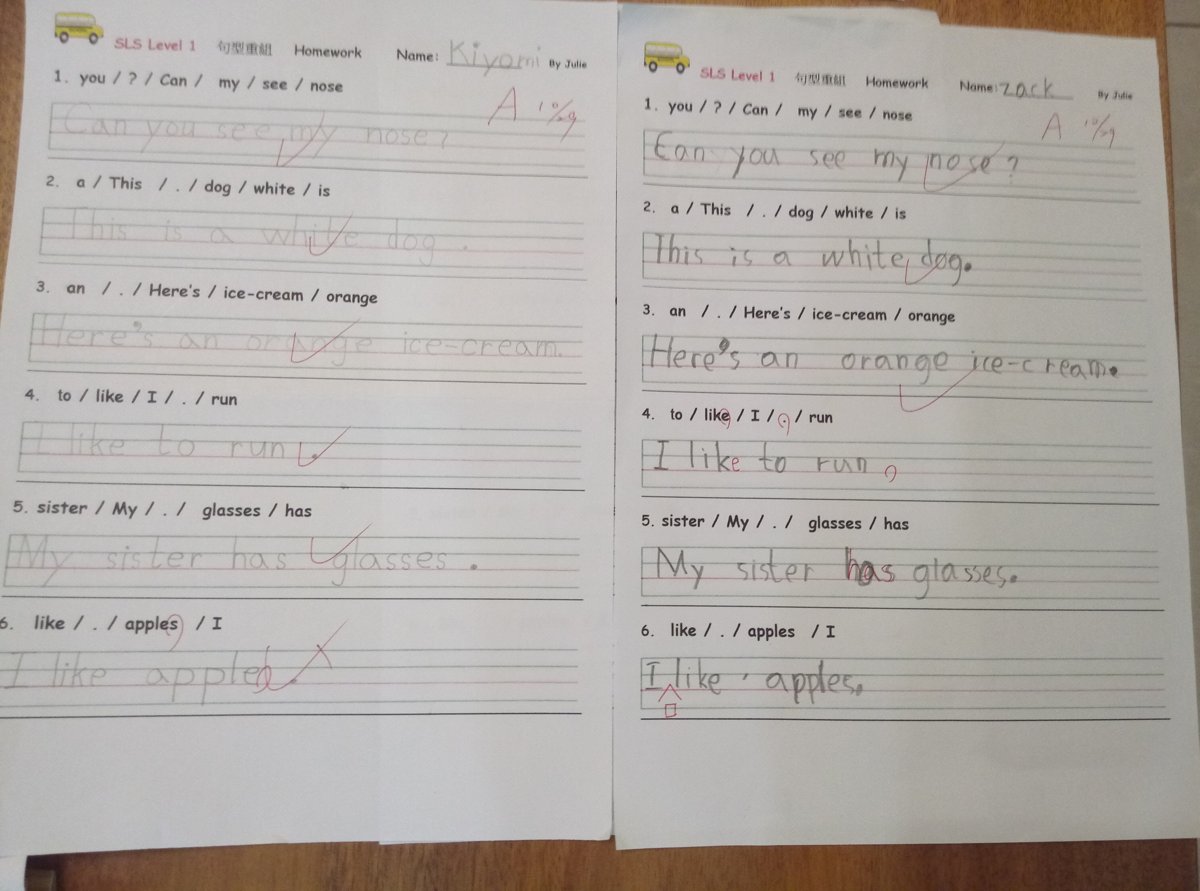 SLS Level 1 句型重組 Homework Name: Kiyomi By Julie
A 10/29
1. you / ? / Can / my / see / nose
Can you see my nose?
2. a / This / . / dog / white / is
This is a white dog.
3. an / . / Here's / ice-cream / orange
Here's an orange ice-cream.
4. to / like / I / . / run
I like to run.
5. sister / My / . / glasses / has
My sister has glasses.
6. like / . / apples / I
I like apples.
SLS Level 1 句型重組 Homework Name: Zack By Julie
A 10/29
1. you / ? / Can / my / see / nose
Can you see my nose?
2. a / This / . / dog / white / is
This is a white dog.
3. an / . / Here's / ice-cream / orange
Here's an orange ice-cream.
4. to / like / I / . / run
I like to run
5. sister / My / . / glasses / has
My sister has glasses.
6. like / . / apples / I
I like . apples.